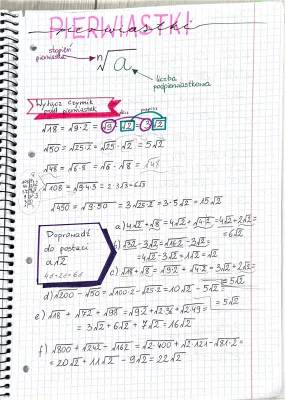 PIERWIASTKI
pierwiastki
stopień
pierwiastka
ⁿ√a
liczba
podpierwiastkowa
Wyłącz czynnik
przed pierwiastek
√18 = √9·2 = √9·√2 = 3√2
√50 = √25·2 = √25·√2 = 5√2
√48 = √6·8 = √6·√8 = √48
√108 = √9·4·3 = 2·3√3=6√3
√450 = √9·50 = 3√25·2 = 3·5√2 = 15√2
Doprowadź
do postaci
a√2
a) 4√2 + √8 = 4√2 + √4·2 = 4√2+2√2=
= 6√2
b) √32 - 3√2 = √16·2 - 3√2 =
= 4√2 - 3√2 = 1√2 = √2
c) √18 + √8 = √9·2 + √4·2 = 3√2+2√2=
= 5√2
d) √200 - √50 = √100·2 - √25·2 = 10√2 - 5√2 =
= 5√2
e) √18 + √72 + √98 = √9·2 + √2·36 + √2·49 =
= 3√2 + 6√2 + 7√2 = 16√2
f) √800 + √242 - √162 = √2·400 + √2·121 - √81·2 =
= 20√2 + 11√2 - 9√2 = 22√2